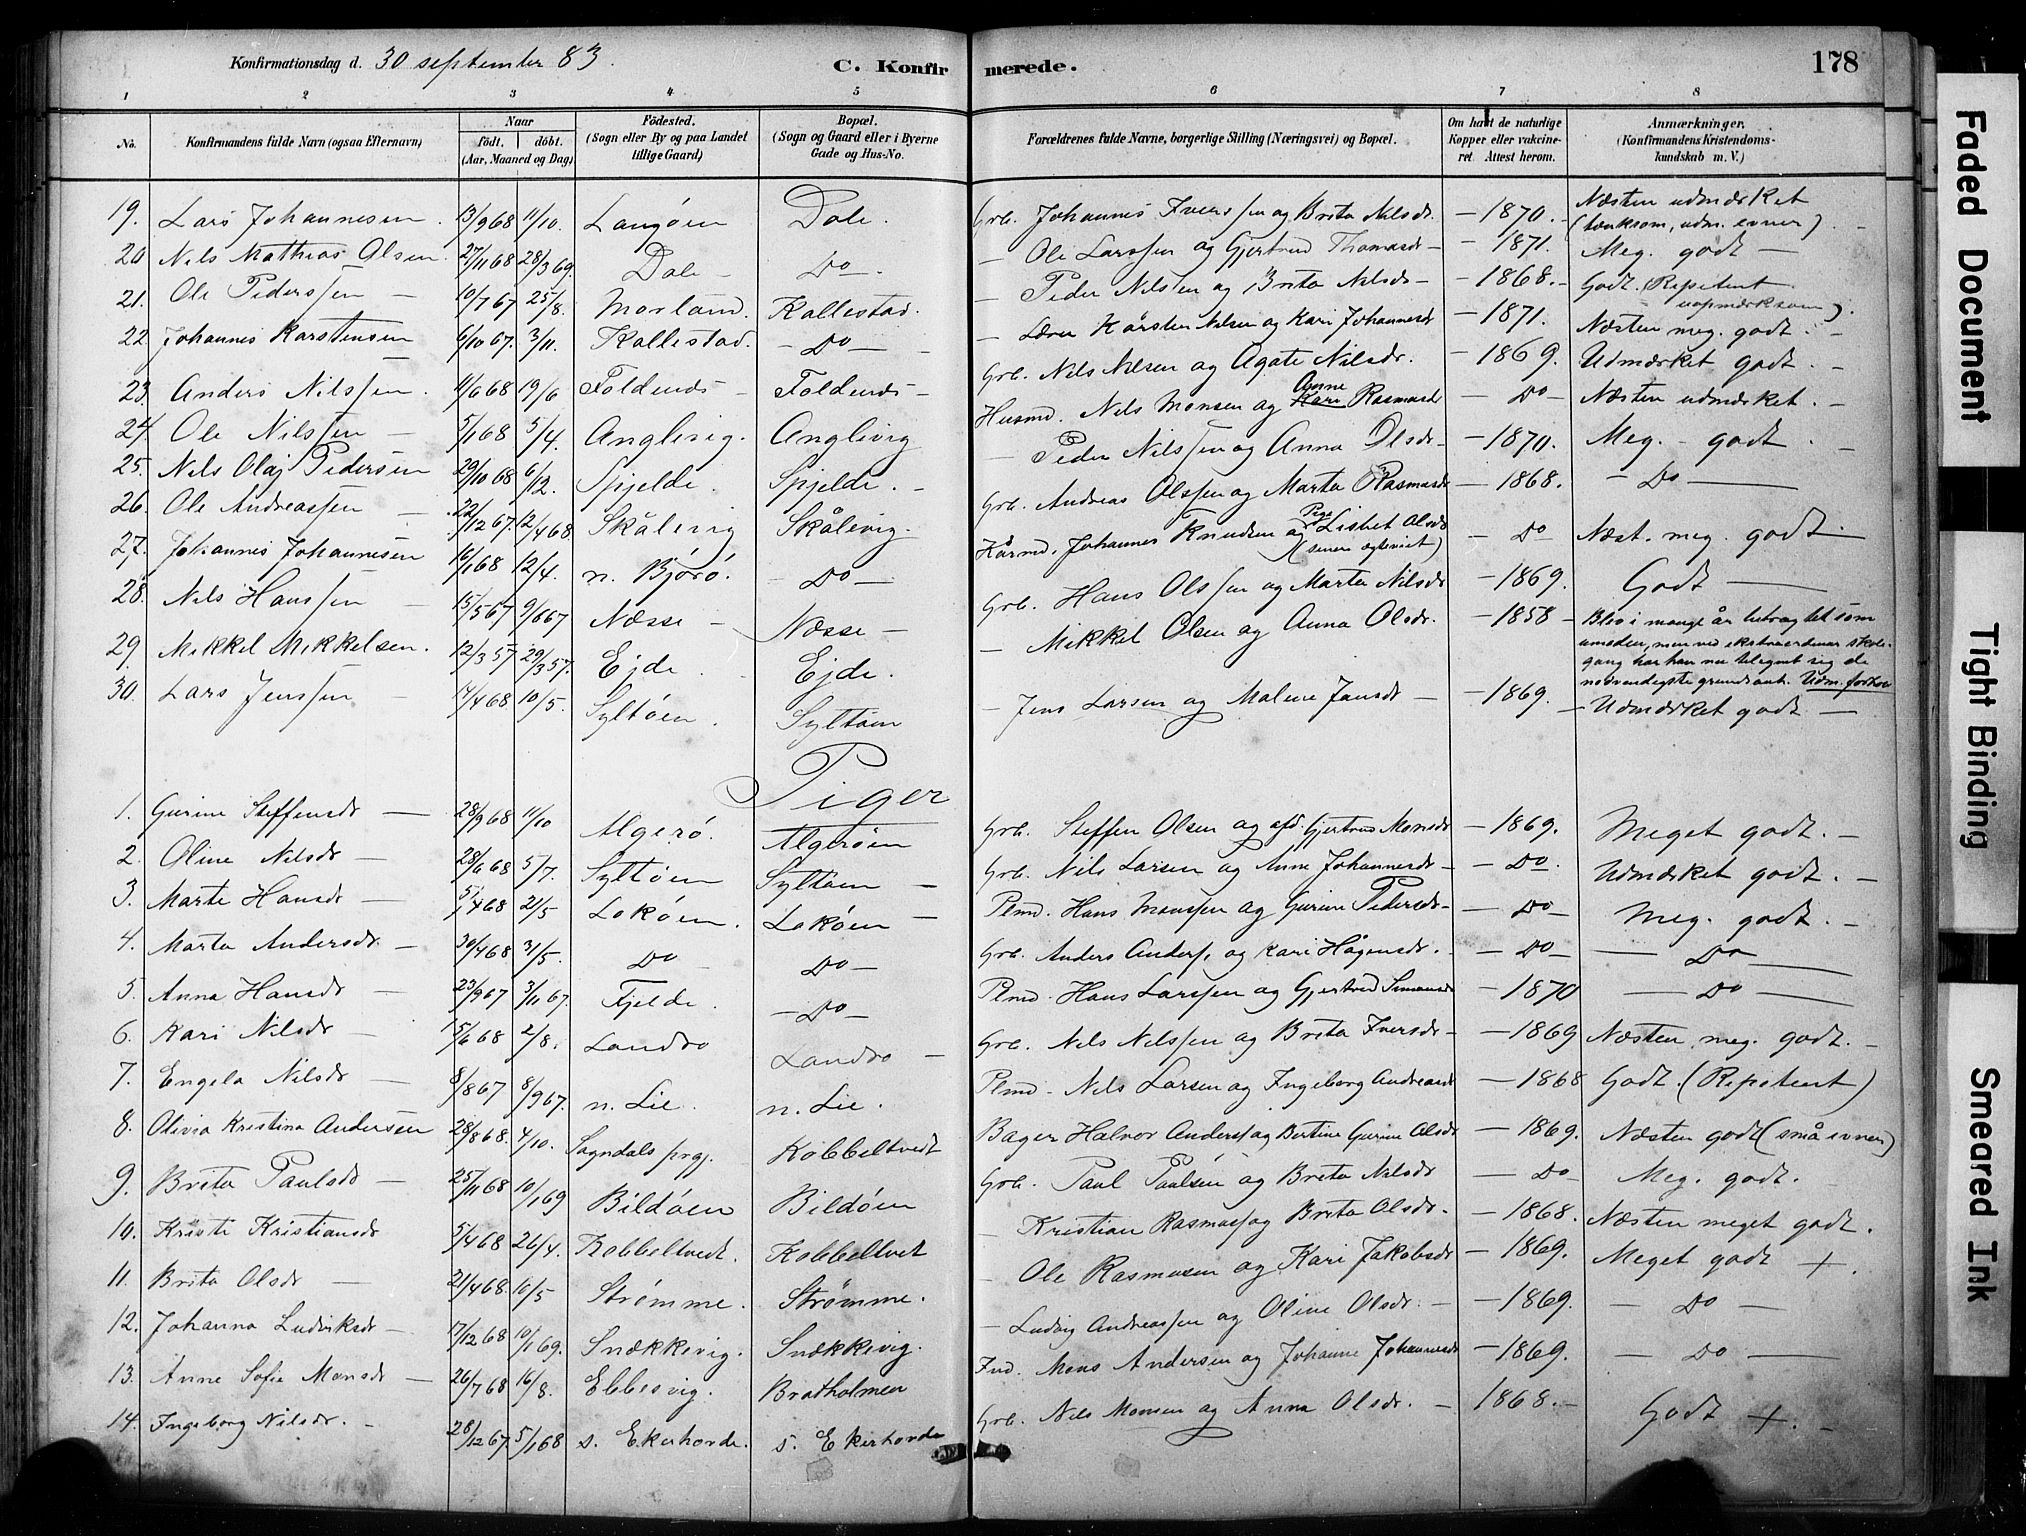 Konfirmationsdag d. 30 september 83. C. Konfirmerede. 178
1 2 3 4 5 6 7 8
No. Konfirmandens fulde Navn (ogsaa Efternavn) Naar født, døbt. (Aar, Maaned og Dag) Fødested. (Sogn eller By og paa Landet tillige Gaard) Bopæl. (Sogn og Gaard eller i Byerne Gade og Hus-No. Forældrenes fulde Navne, borgerlige Stilling (Næringsvei) og Bopæl. Om havt de naturlige Kopper eller vakcineret. Attest herom. Anmærkninger. (Konfirmandens Kristendomskundskab m. V.)
19. Lars Johannesen. 13/9 68 11/10 Langöen Dale. Grb. Johannes Iverssen og Brita Nilsdr. – 1870. – Næsten udmærket (tænksom, udm. evner)
20 Nils Mathias Olsen 27/11 68 28/3 69. Dale – Do – – Ole Larssen og Gjertrud Thomasdr – – 1871. Meg. godt –
21. Ole Pederssen – 10/7 67 25/8. Morland. Kallestad. – Peder Nilssen og Brita Nilsdr – – 1868. – Godt. (Repetent uopmærksom).
22 Johannes Karstensen 6/10 67. 3/11. Kallestad. – Do – – Lærer Kársten Nilsen og Kari Johannesdr – 1871. Næsten meg. godt. –
23. Anders Nilssen 11/6 68 19/6 Foldenæs – Foldenæs – Grb. Nils Nilsen og Agate Nilsdr. – 1869. Udmærket godt. –
24. Ole Nilssen – 5/1 68 5/4. Anglevig. Anglevig Husmd. Nils Monsen og Anne Kari Rasmusd – Do – Næsten udmærket. –
25. Nils Olaj Pedersen 29/10 68 6/12. Spjelde. Spjelde. – – Peder Nilssen og Anna Olsdr – – 1870. Meg. – godt –
26. Ole Andreassen – 22/12 67. 12/4 68 Skålevig Skålevig. Grb. Andreas Olssen og Marta Rasmusdr – 1868. – Do –
27. Johannes Johannesen 16/1 68 12/4. n. Bjorö. – Do – Kårmd. Johannes Knudsen og Pige Lisbet Olsdr (senere ægteviet) – Do Næst. meg. godt –
28. Nils Hanssen – 15/5 67 9/6 67 Næsse – Næsse – Grb. Hans Olssen og Marta Nilsdr – 1869. Godt –
29. Mikkel Mikkelsen. 12/3 57 29/3 57. Ejde. Ejde. – Mikkel Olsen og Anna Olsdr. – 1858 – Blev i mange år betragtet som umoden, men ved ekstraordinær skolegang har han nu tilegnet sig de nødvendigste grundsant. Udm. forhold
30. Lars Jenssen – 14/4 68 10/5. Syltöen. Syltöen – Jens Larsen og Malene Jansdr – – 1869. – Udmærket godt –
Piger
1. Gurine Steffensdr – 28/9 68 11/10 Algerö. Algeröen Grb. Steffen Olsen og afd. Gjertrud Monsdr – 1869. Meget godt. –
2. Oline Nilsdr – 28/6 68 5/7. Syltöen Syltöen – Grb. Nils Larsen og Anne Johannesdr – – Do. Udmærket godt. –
3. Marte Hansdr – 5/4 68 21/5 Loköen. Loköen – Plmd. Hans Monssen og Gurine Pedersdr – – Do – Meg. godt. –
4. Marta Andersdr – 30/4 68 31/5. Do – Do – Grb. Anders Anders. og Kari Hågensdr. – Do – – Do –
5. Anna Hansdr – 23/9 67 3/11 67. Fjelde. – Do – Plmd. Hans Larssen og Gjertrud Simonsdr – 1870 – Do –
6. Kari Nilsdr – 15/6 68 2/8. Landro Landro – Grb. Nils Nilssen og Brita Iversdr – – 1869 Næsten meg. godt. –
7. Engela Nilsdr – 8/8 67 8/9 67. n. Lie. n. Lie. Plmd. Nils Larsen og Ingeborg Andreasdr – 1868 Godt. (Repetent)
8. Olivia Kristina Andersen 28/8 68. 4/10. Sogndals prgj. Kobbeltvedt Bager Halvor Anders. og Bertine Gurine Olsdr – 1869. Næsten godt (små evner)
9. Brita Paulsdr – 25/11 68 10/1 69 Bildöen Bildöen Grb. Paul Paulsen og Brita Nilsdr – Do – Meg. godt.
10. Kristi Kristiansdr 5/4 68 26/4. Kobbeltvedt. Kobbeltvet – Kristian Rasmuss. og Brita Olsdr. – 1868. Næsten meget godt.
11. Brita Olsdr – 21/4 68. 10/5 Strömme. Strömme. – Ole Rasmusen og Kari Jakobsdr – 1869. Meget godt +.
12. Johanna Ludviksdr – 17/12 68 10/1 69. Snækkevig. Snækkevig. – Ludvig Andreassen og Oline Olsdr. – – 1869. – Do –
13. Anne Sofie Monsdr – 26/7 68 16/8. Ebbesvig. Bratholmen Ind. Mons Andersen og Johanne Johannesdr – 1869. – Do –
14. Ingeborg Nilsdr. – 28/12 67 5/1 68 s. Ekerhovde. s. Ekerhovde Grb. Nils Monsen og Anna Olsdr. – 1868. – Godt +. –
Faded Document
Tight Binding
Smeared Ink